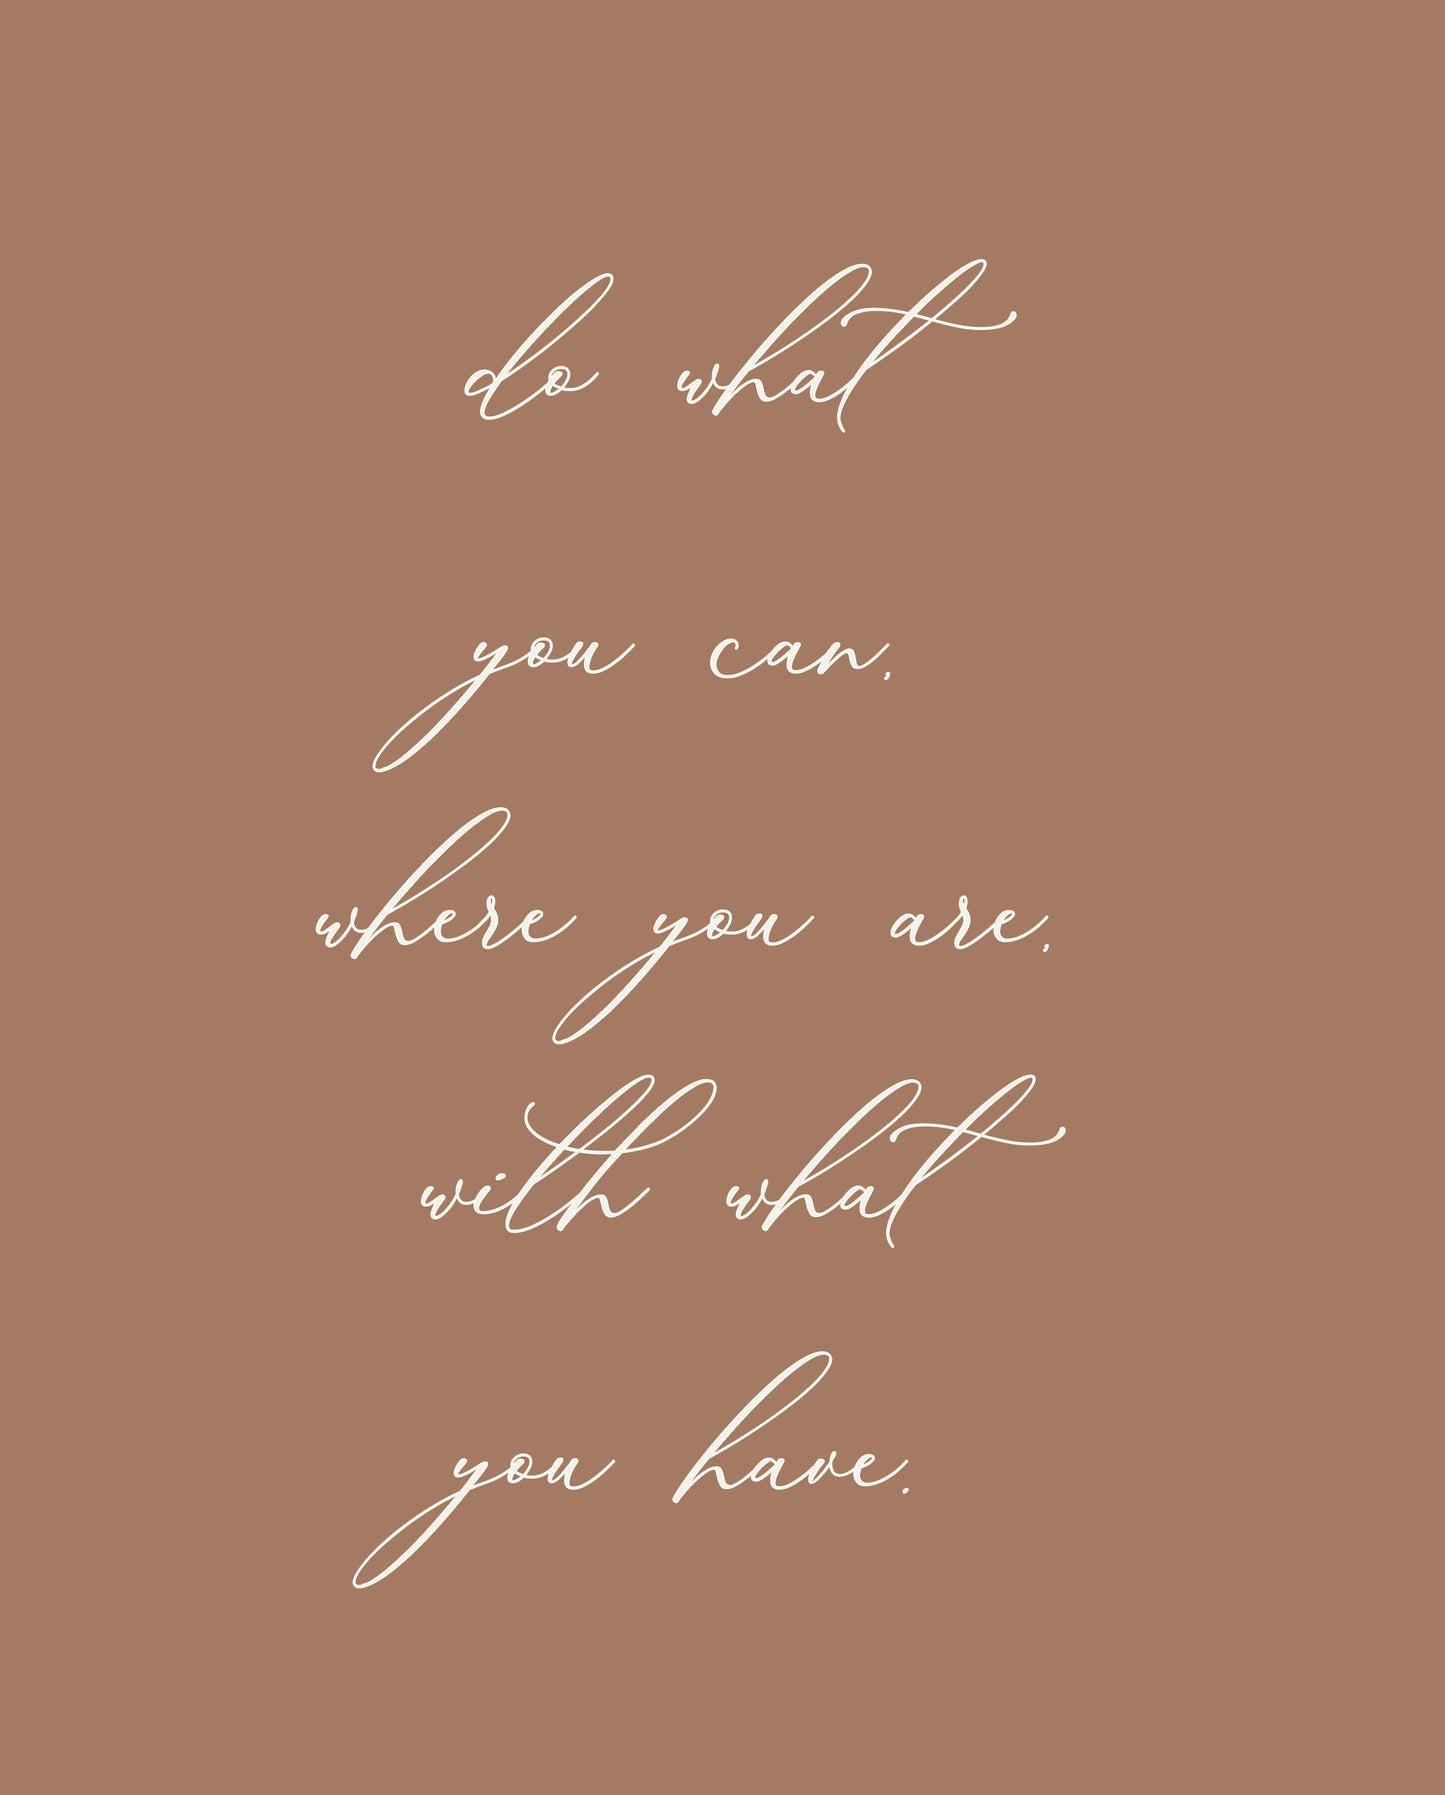 do what
you can,
where you are,
with what
you have.